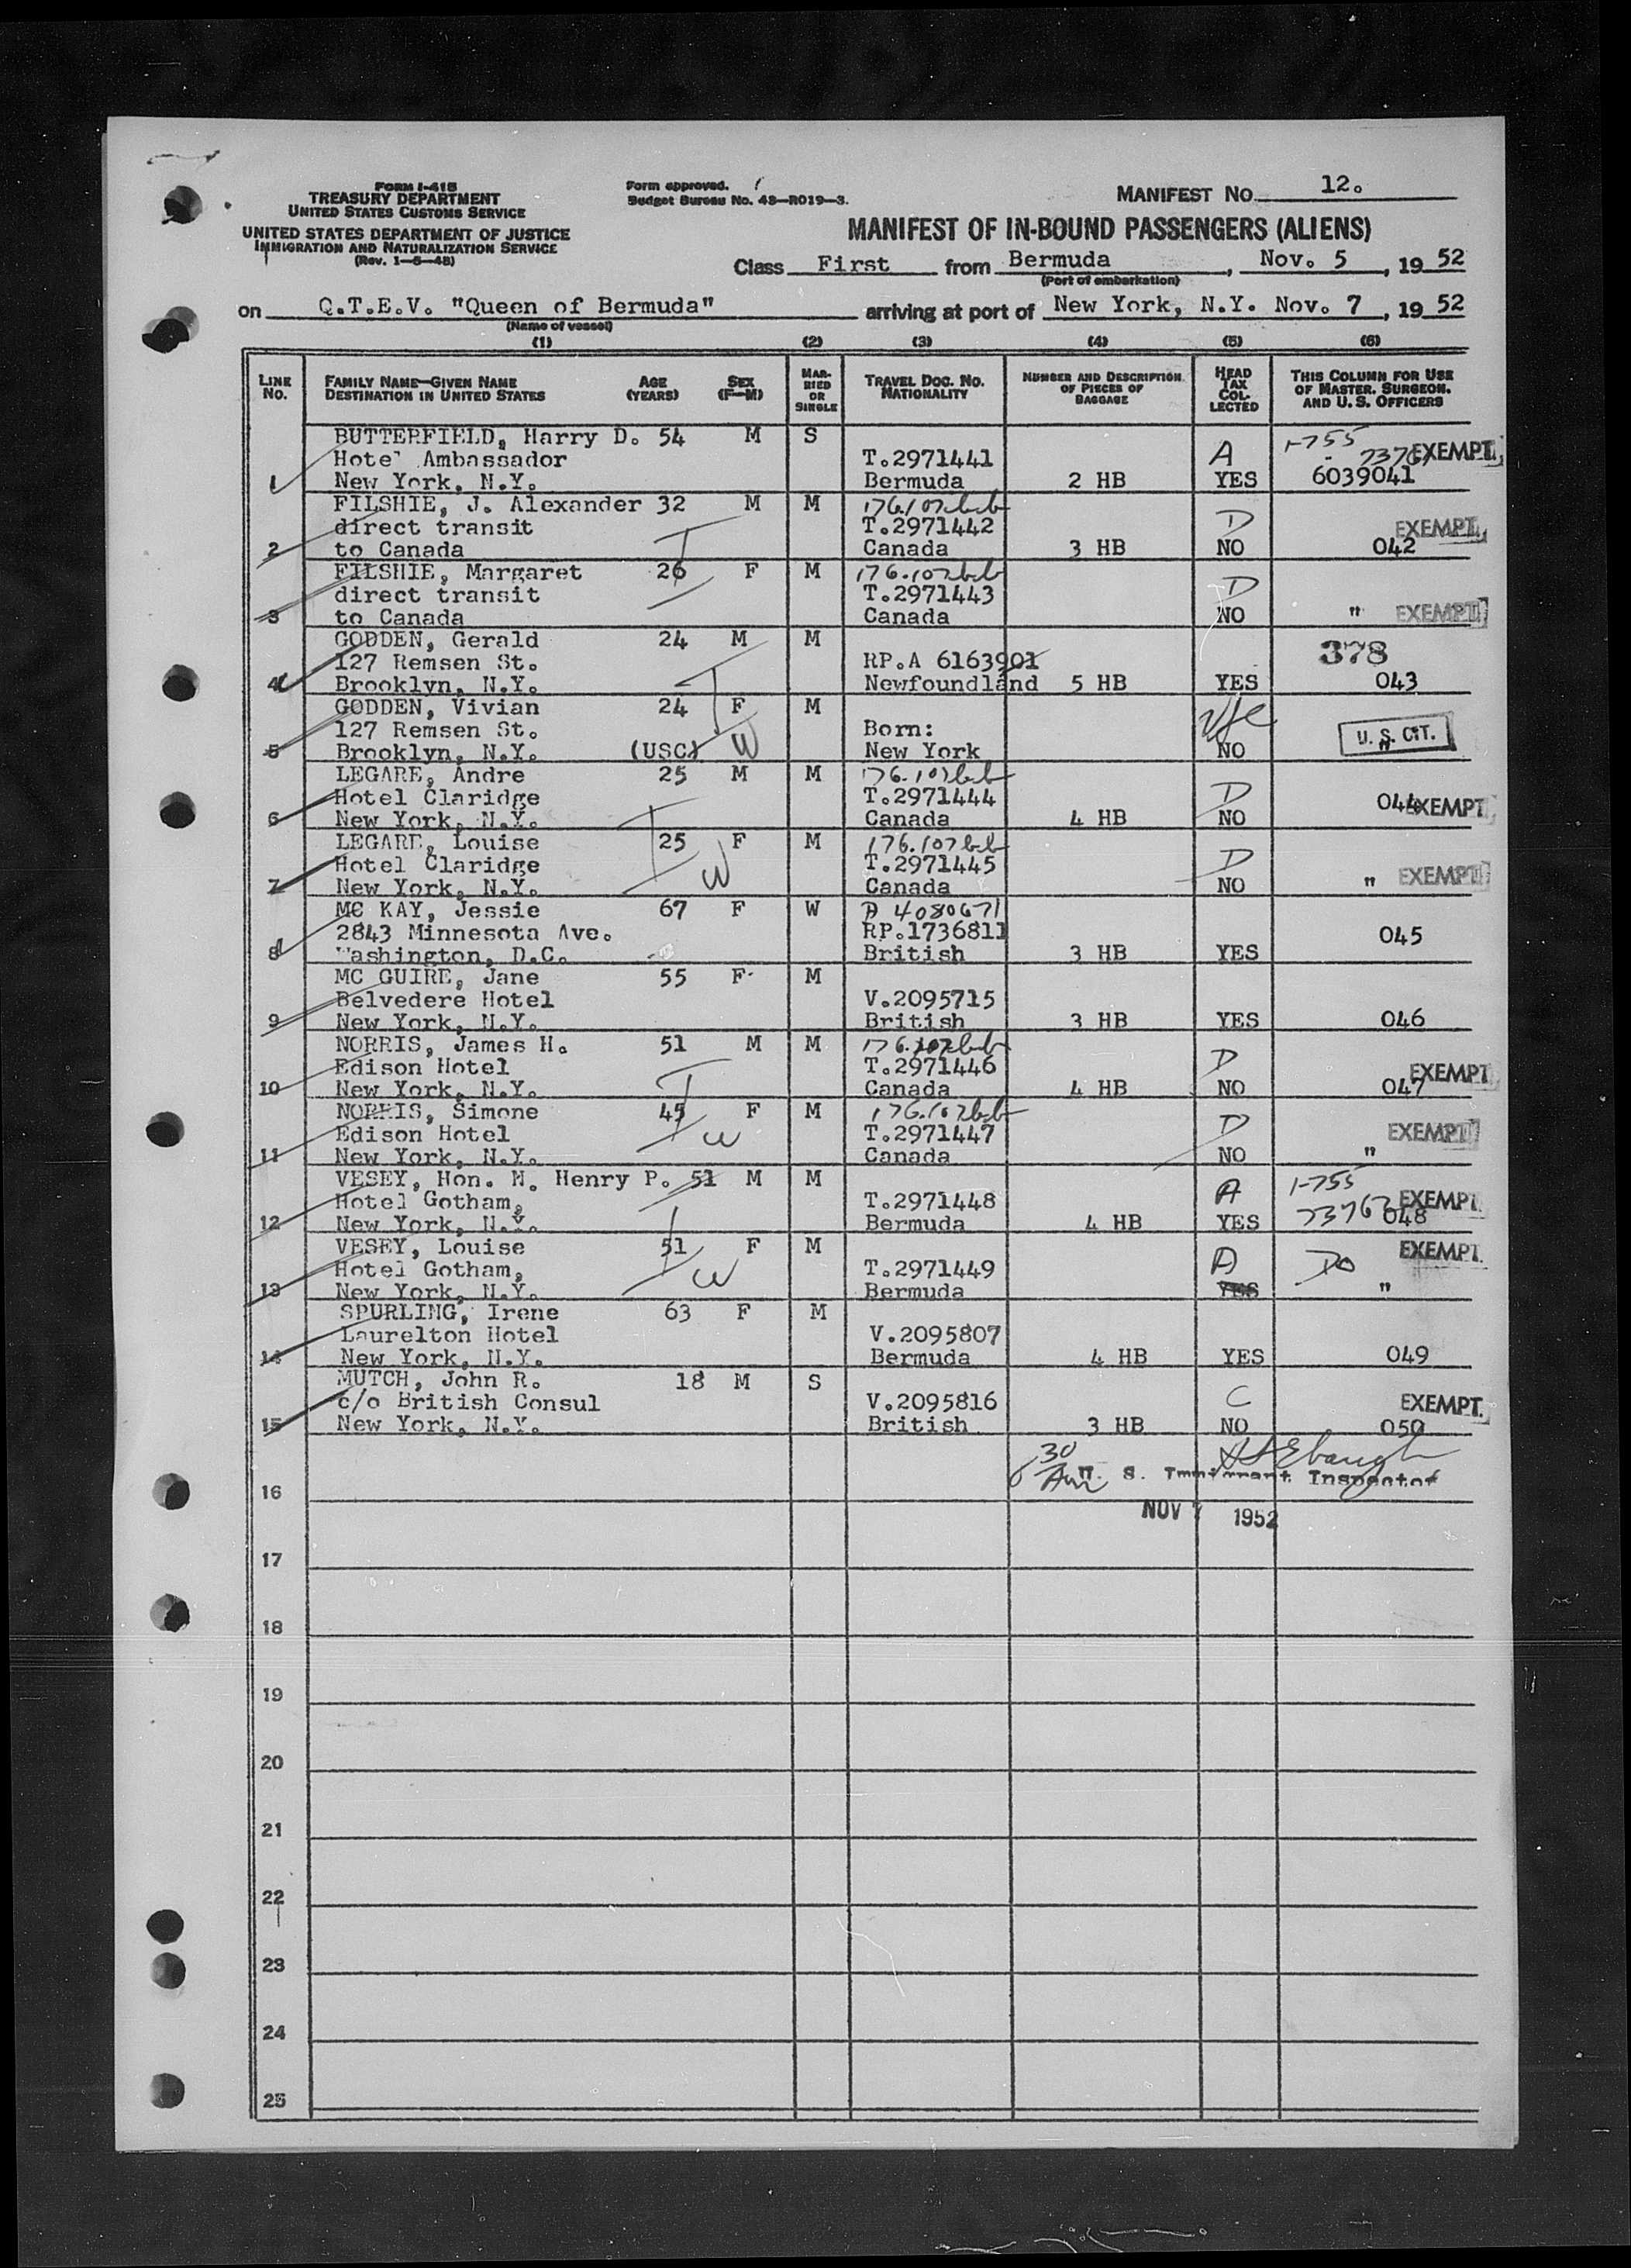 FORM I-415
TREASURY DEPARTMENT
UNITED STATES CUSTOMS SERVICE
UNITED STATES DEPARTMENT OF JUSTICE
IMMIGRATION AND NATURALIZATION SERVICE
(Rev. 1-5-48)
Form approved.
Budget Bureau No. 43-R019-3.
MANIFEST NO. 12.
MANIFEST OF IN-BOUND PASSENGERS (ALIENS)
Class First from Bermuda, Nov. 5, 1952
(Port of embarkation)
on Q.T.E.V. "Queen of Bermuda" arriving at port of New York, N.Y. Nov. 7, 1952
(Name of vessel)
(1) (2) (3) (4) (5) (6)
LINE NO. FAMILY NAME—GIVEN NAME DESTINATION IN UNITED STATES AGE (YEARS) SEX (F—M) MARRIED OR SINGLE TRAVEL DOC. NO. NATIONALITY NUMBER AND DESCRIPTION OF PIECES OF BAGGAGE HEAD TAX COLLECTED THIS COLUMN FOR USE OF MASTER, SURGEON, AND U. S. OFFICERS
BUTTERFIELD, Harry D. 54 M S 1-755
Hotel Ambassador T.2971441 A EXEMPT
1 New York, N.Y. Bermuda 2 HB YES 6039041
FILSHIE, J. Alexander 32 M M 176.107
direct transit T.2971442 D EXEMPT
2 to Canada Canada 3 HB NO 042
FILSHIE, Margaret 26 F M 176.107
direct transit T.2971443 D
3 to Canada Canada NO " EXEMPT
GODDEN, Gerald 24 M M 378
127 Remsen St. RP.A 6163901
4 Brooklyn, N.Y. Newfoundland 5 HB YES 043
GODDEN, Vivian 24 F M
127 Remsen St. Born: U. S. CIT.
5 Brooklyn, N.Y. (USC) W New York NO "
LEGARE, Andre 25 M M 176.107
Hotel Claridge T.2971444 D 044 EXEMPT
6 New York, N.Y. Canada 4 HB NO
LEGARE, Louise 25 F M 176.107
Hotel Claridge T.2971445 D
7 New York, N.Y. W Canada NO " EXEMPT
MC KAY, Jessie 67 F W 4080671
2843 Minnesota Ave. RP.1736811 045
8 Washington, D.C. British 3 HB YES
MC GUIRE, Jane 55 F M
Belvedere Hotel V.2095715
9 New York, N.Y. British 3 HB YES 046
NORRIS, James H. 51 M M 176.107
Edison Hotel T.2971446 D EXEMPT
10 New York, N.Y. Canada 4 HB NO 047
NORRIS, Simone 45 F M 176.107
Edison Hotel W T.2971447 D EXEMPT
11 New York, N.Y. Canada NO "
VESEY, Hon. N. Henry P. 51 M M 1-755
Hotel Gotham, T.2971448 A EXEMPT
12 New York, N.Y. Bermuda 4 HB YES 048
VESEY, Louise 51 F M EXEMPT
Hotel Gotham, W T.2971449 A Do
13 New York, N.Y. Bermuda YES "
SPURLING, Irene 63 F M
Laurelton Hotel V.2095807
14 New York, N.Y. Bermuda 4 HB YES 049
MUTCH, John R. 18 M S
c/o British Consul V.2095816 C EXEMPT
15 New York, N.Y. British 3 HB NO 050
30
U. S. Immigrant Inspector
16
NOV 7 1952
17
18
19
20
21
22
23
24
25